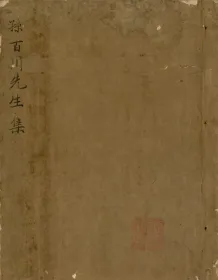 孫百川先生集